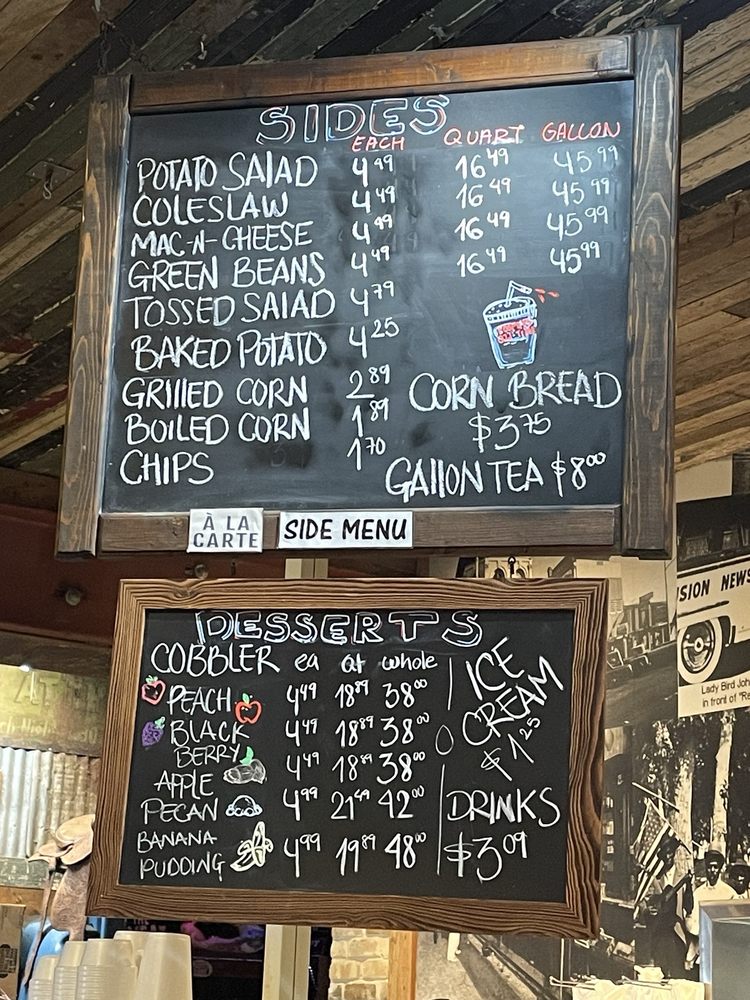 SIDES
EACH QUART GALLON
POTATO SALAD 4.49 16.49 45.99
COLESLAW 4.49 16.49 45.99
MAC-N-CHEESE 4.49 16.49 45.99
GREEN BEANS 4.49 16.49 45.99
TOSSED SALAD 4.79
BAKED POTATO 4.25
GRILLED CORN 2.89
BOILED CORN 1.89
CHIPS 1.70
CORN BREAD
$3.75
GALLON TEA $8.00
À LA
CARTE
SIDE MENU
DESSERTS
COBBLER ea qt whole
PEACH 4.49 18.89 38.00
BLACK
BERRY 4.49 18.89 38.00
APPLE 4.49 18.89 38.00
PECAN 4.99 21.49 42.00
BANANA
PUDDING 4.99 19.89 48.00
ICE
CREAM
$1.25
DRINKS
$3.09
SION NEWS
Lady Bird Joh
in front of "Re